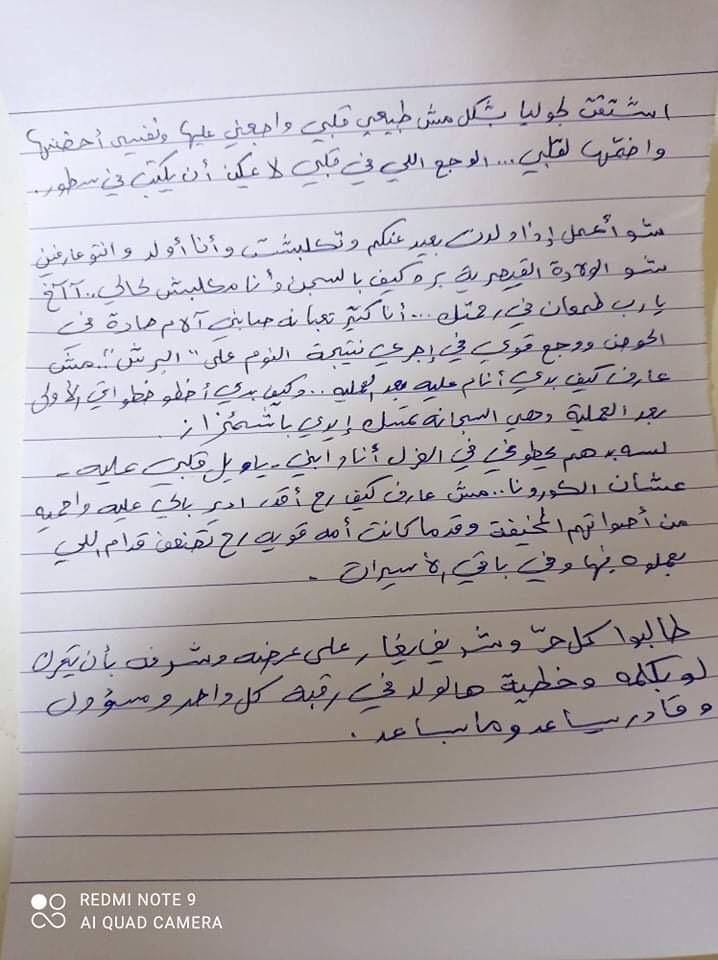 اشتقت لجوليا بشكل مش طبيعي قلبي واجعني عليها ونفسي أحضنها
واضمّها لقلبي... الوجع اللي في قلبي لا يمكن أن يكتب في سطور.
شو أعمل إذا ولدت بعيد عنكم وتكلبشت وأنا أولد وانتو عارفين
شو الولادة القيصرية بره كيف بالسجن وأنا مكلبش لحالي.. آآآخ
يا رب طمعان في رحمتك... أنا كثير تعبانه صابني آلام حادة في
الحوض ووجع قوي في إجري نتيجة النوم على "البرش".. مش
عارف كيف بدي أنام عليه بعد العملية.. وكيف بدي أخطو خطواتي الأولى
بعد العملية وهي السجانه تمسك إيدي باشمئزاز.
لسه بدهم يحطوني في العزل أنا وابني - يا ويل قلبي عليه -
عشان الكورونا.. مش عارف كيف رح أقدر ادير بالي عليه واحميه
من أصواتهم المخيفة وقد ما كانت أمه قويه رح تضعف قدام اللي
بعملوه فيها وفي باقي الأسيرات.
طالبوا كل حرّ وشريف يغار على عرضه وشرفه بأن يتحرك
لو بكلمه وخطية هالولد في رقبة كل واحد ومسؤول
وقادر يساعد وما يساعد.
REDMI NOTE 9
AI QUAD CAMERA